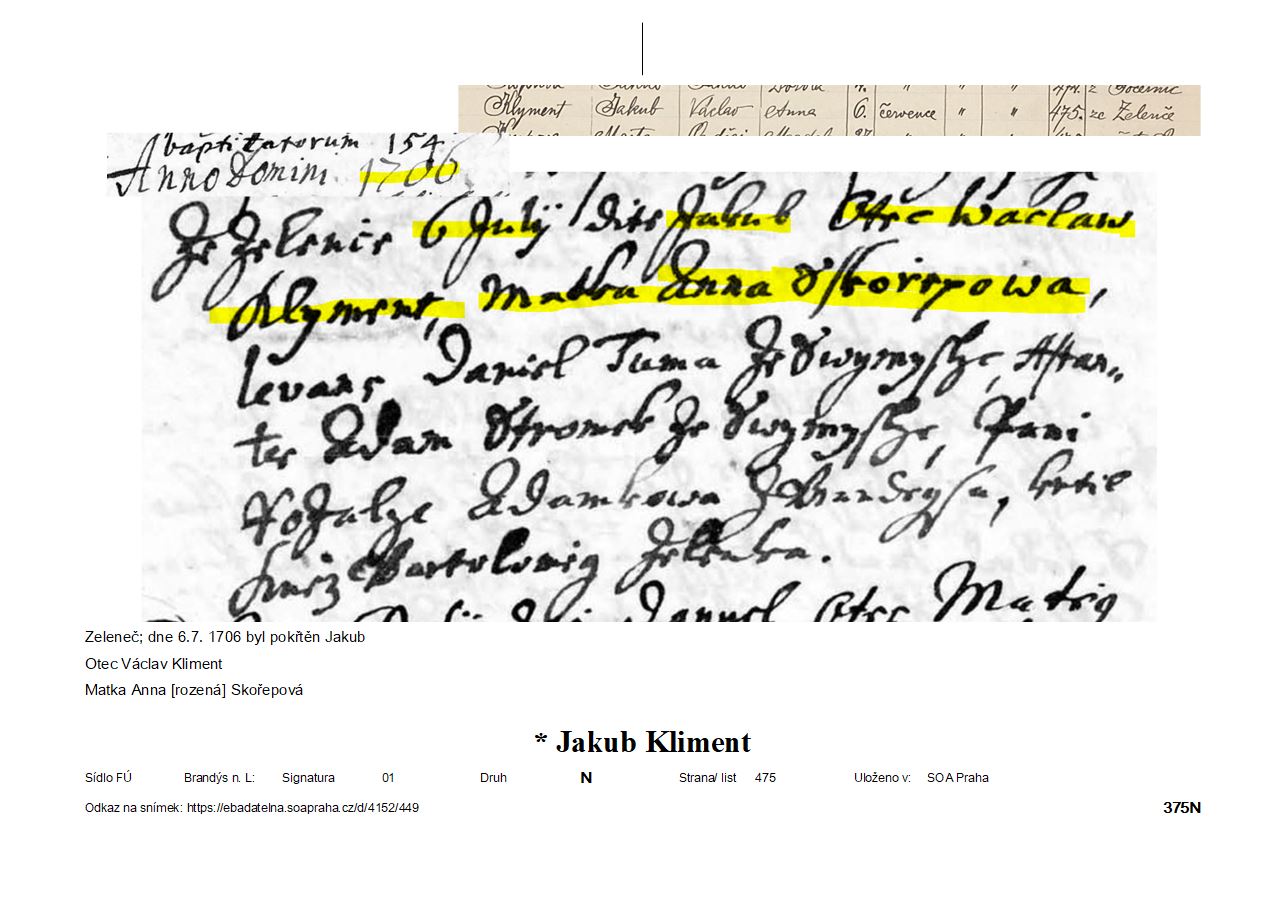 Klyment Jakub Václav Anna 6. července " " 475. ze Zelenče
baptizatorum 154
Anno Domini 1706
Ze Zelencie 6 July ditie Jakub Otec Waclaw
Klyment, Matka Anna Skorzepowa,
levans Daniel Tuma Ze Swymysze, Assan„
tes Adam Stromek Ze Swymysze, Pani
Rozalye Adamkowa Z Brandeysa, krtil
kniez Bartolomig Zelenka.
Otec Matieg
Zeleneč; dne 6.7. 1706 byl pokřtěn Jakub
Otec Václav Kliment
Matka Anna [rozená] Skořepová
* Jakub Kliment
Sídlo FÚ Brandýs n. L: Signatura 01 Druh N Strana/ list 475 Uloženo v: SOA Praha
Odkaz na snímek: https://ebadatelna.soapraha.cz/d/4152/449 375N